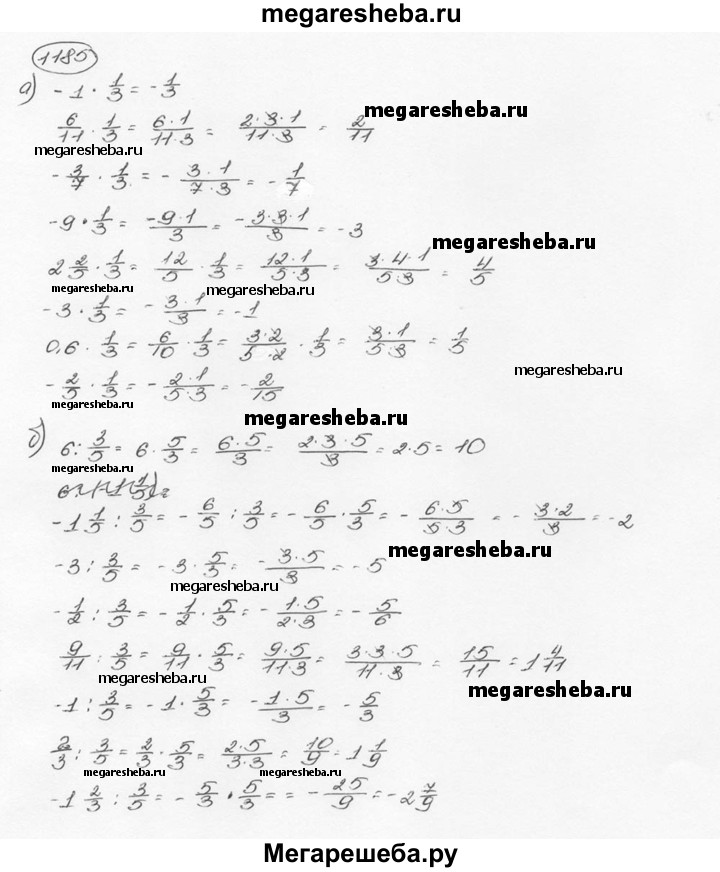 megaresheba.ru
1185
а) -1 · 1/3 = -1/3
6/11 · 1/3 = 6·1/11·3 = 2·3·1/11·3 = 2/11
megaresheba.ru
megaresheba.ru
-3/7 · 1/3 = - 3·1/7·3 = -1/7
-9 · 1/3 = -9·1/3 = -3·3·1/3 = -3
megaresheba.ru
2 2/5 · 1/3 = 12/5 · 1/3 = 12·1/5·3 = 3·4·1/5·3 = 4/5
megaresheba.ru megaresheba.ru
-3 · 1/3 = - 3·1/3 = -1
0,6 · 1/3 = 6/10 · 1/3 = 3·2/5·2 · 1/3 = 3·1/5·3 = 1/5
megaresheba.ru
-2/5 · 1/3 = - 2·1/5·3 = - 2/15
megaresheba.ru
б) 6 : 3/5 = 6 · 5/3 = 6·5/3 = 2·3·5/3 = 2·5 = 10
megaresheba.ru
-1 1/5 : 3/5 = - 6/5 : 3/5 = - 6/5 · 5/3 = - 6·5/5·3 = - 3·2/3 = -2
megaresheba.ru
-3 : 3/5 = -3 · 5/3 = - 3·5/3 = -5
megaresheba.ru
-1/2 : 3/5 = -1/2 · 5/3 = - 1·5/2·3 = - 5/6
9/11 : 3/5 = 9/11 · 5/3 = 9·5/11·3 = 3·3·5/11·3 = 15/11 = 1 4/11
megaresheba.ru
megaresheba.ru
-1 : 3/5 = -1 · 5/3 = - 1·5/3 = - 5/3
2/3 : 3/5 = 2/3 · 5/3 = 2·5/3·3 = 10/9 = 1 1/9
megaresheba.ru megaresheba.ru
-1 2/3 : 3/5 = - 5/3 · 5/3 = = - 25/9 = -2 7/9
Мегарешеба.ру